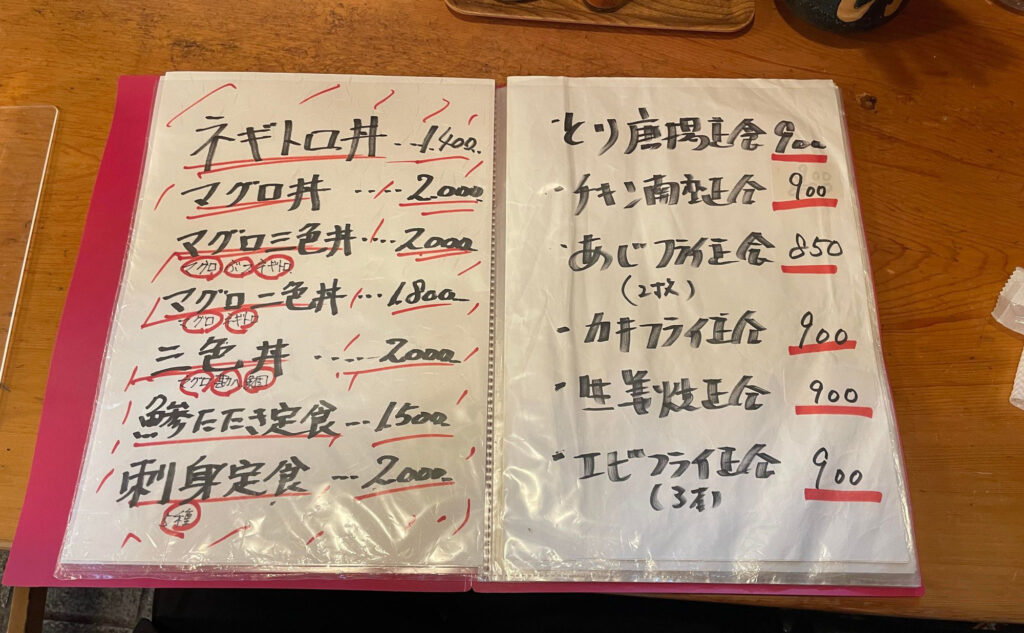 ネギトロ丼 ‥‥1400
マグロ丼 ‥‥ 2000
マグロ三色丼 ‥‥ 2000
マグロ ぶつ ネギトロ
マグロ二色丼 ‥‥ 1800
マグロ ネギトロ
三色丼 ‥‥ 2000
マグロ
鯵たたき定食 ‥‥ 1500
刺身定食 ‥‥ 2000
種
・とり唐揚定食 900
・チキン南蛮定食 900
・あじフライ定食 850
(2枚)
・カキフライ定食 900
・生姜焼定食 900
・エビフライ定食 900
(3本)